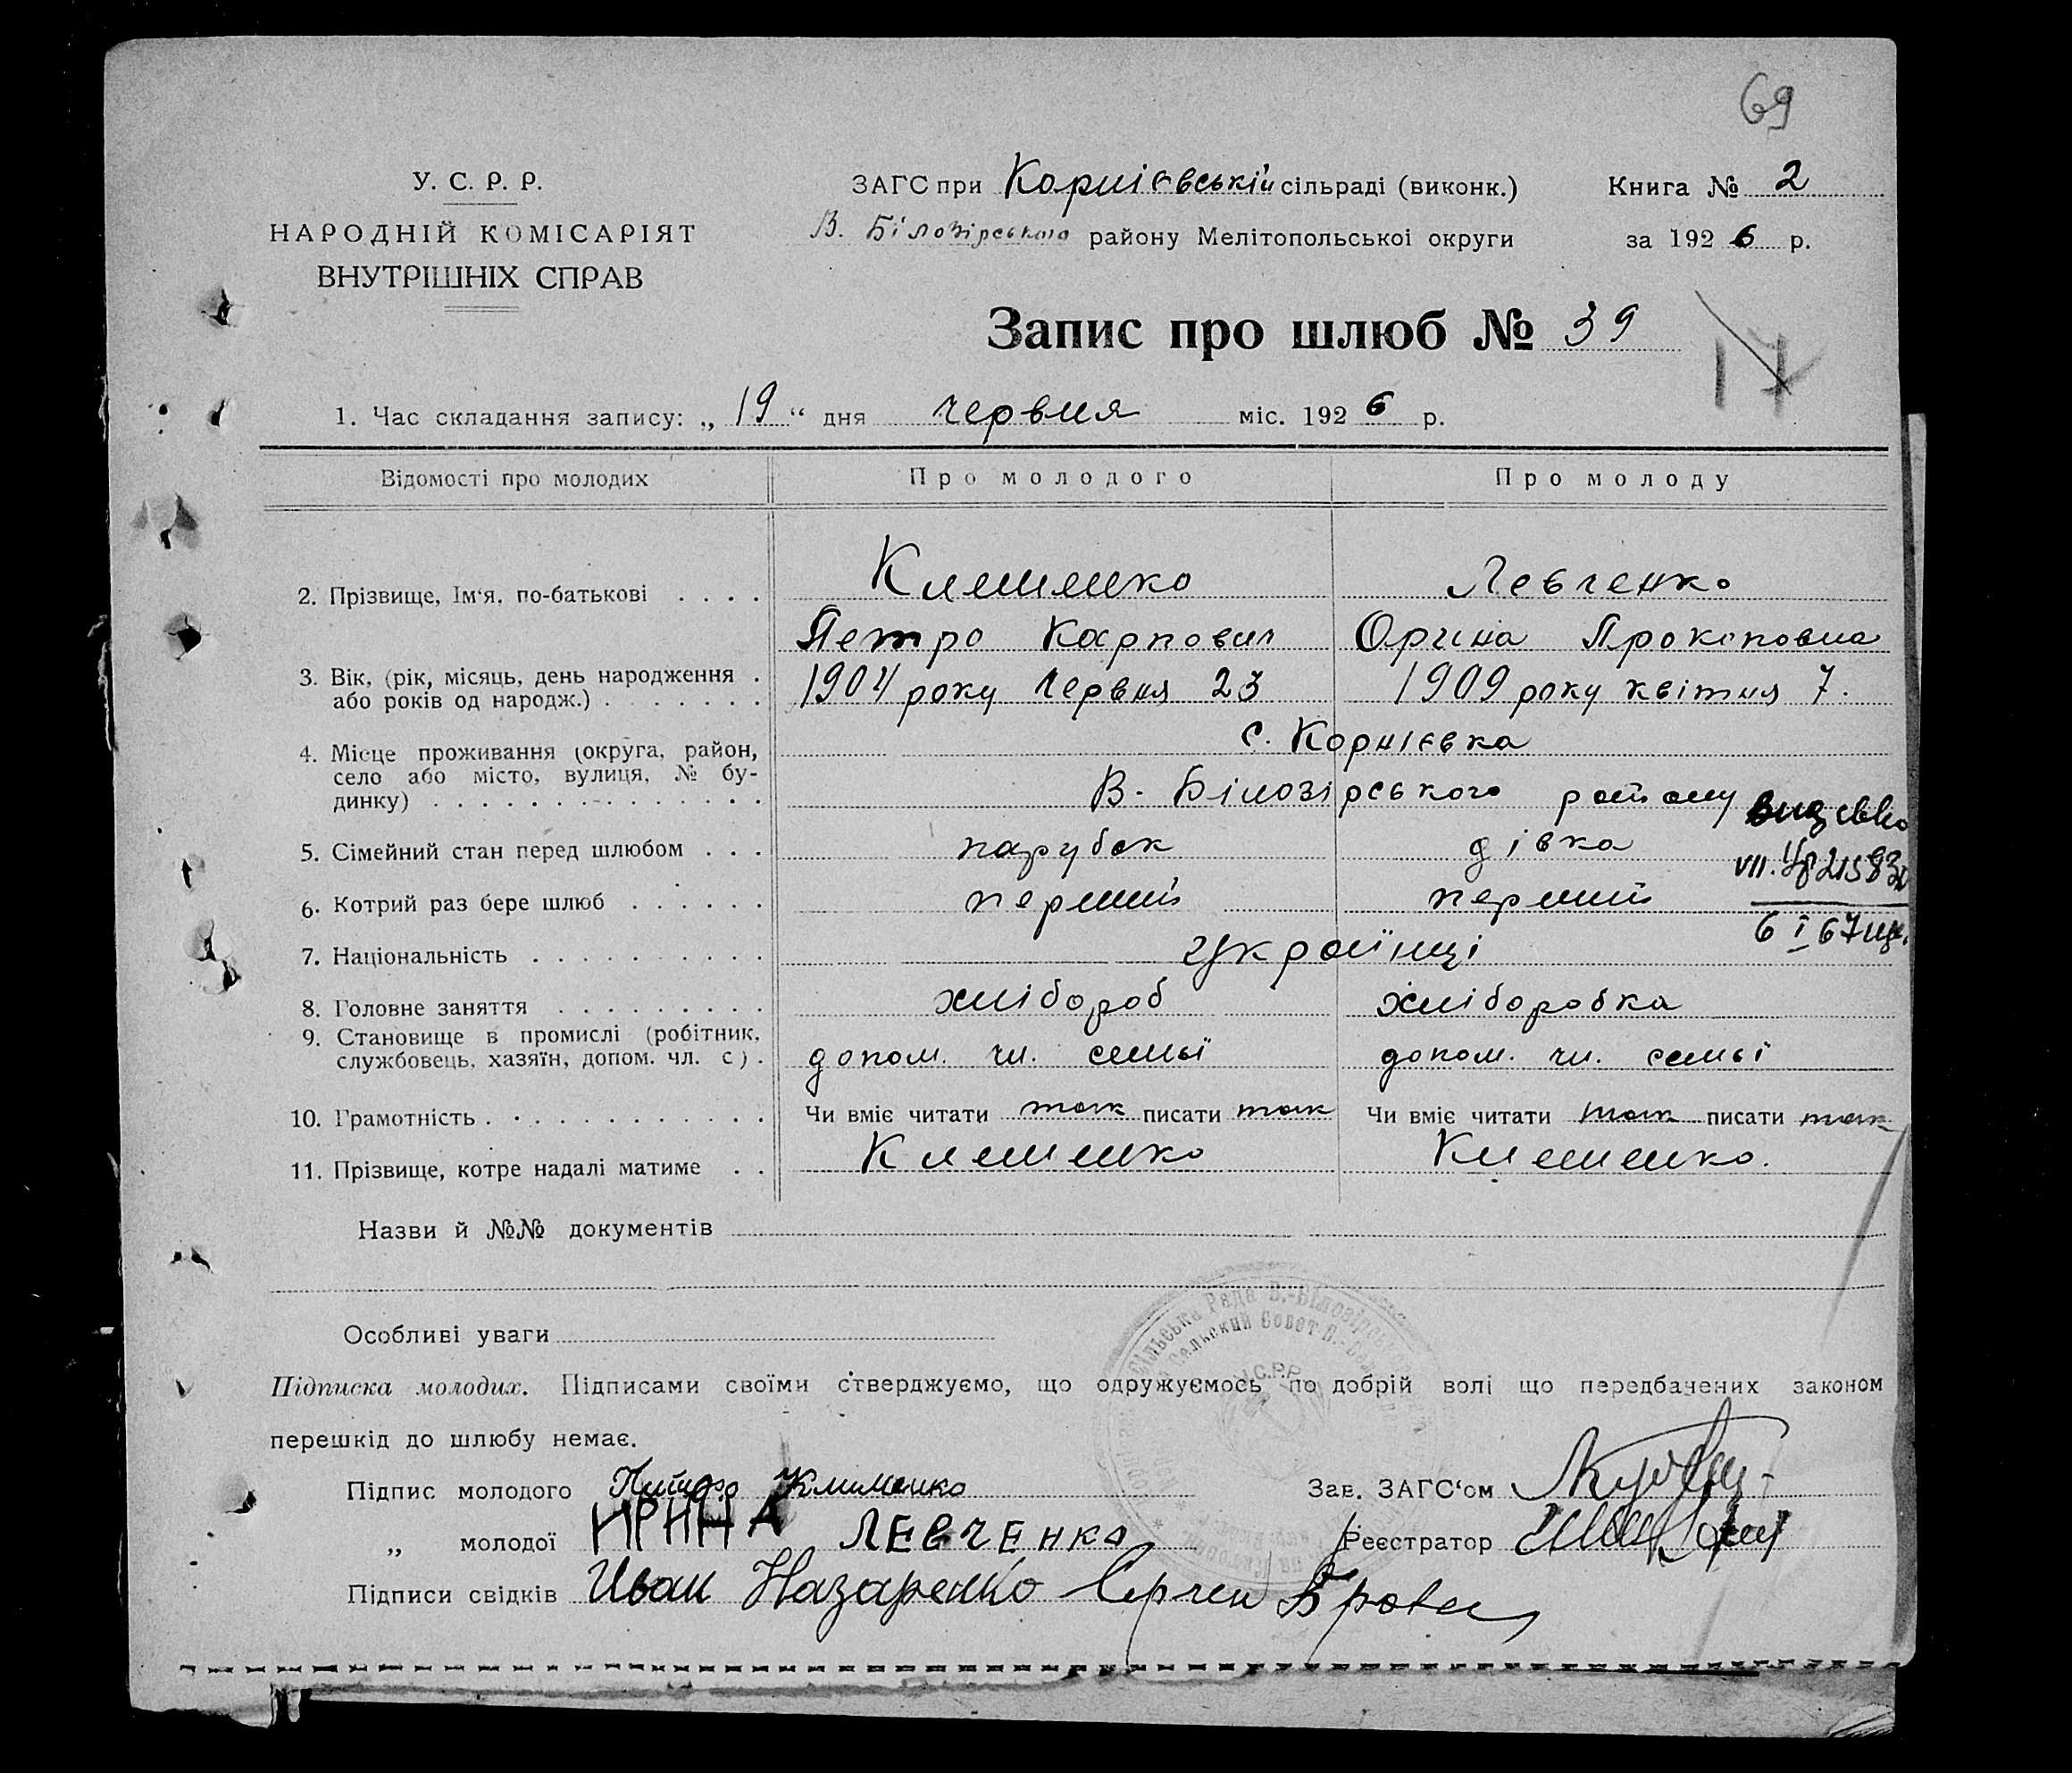 69
У. С. Р. Р.
НАРОДНІЙ КОМІСАРІЯТ
ВНУТРІШНІХ СПРАВ
ЗАГС при Корнієвській сільраді (виконк.)
В. Білозірського району Мелітопольської округи
Книга № 2
за 1926 р.
Запис про шлюб № 39
17
1. Час складання запису: „ 19 “ дня червня міс. 1926 р.
Відомості про молодих
Про молодого
Про молоду
2. Прізвище, Ім‘я, по-батькові . . . .
Клименко
Левченко
Петро Карпович
Орина Прокоповна
3. Вік, (рік, місяць, день народження .
або років од народж.) . . . . . . .
1904 року червня 23
1909 року квітня 7.
4. Місце проживання (округа, район,
село або місто, вулиця, № бу-
динку) . . . . . . . . . . . . . .
с. Корнієвка
В. Білозірського району
5. Сімейний стан перед шлюбом . . .
парубок
дівка
6. Котрий раз бере шлюб . . . . . .
перший
перший
6 I 67
7. Національність . . . . . . . . . .
українці
8. Головне заняття . . . . . . . . .
хлібороб
хліборобка
9. Становище в промислі (робітник,
службовець, хазяїн, допом. чл. с) .
допом. чл. семьї
допом. чл. семьї
10. Грамотність . . . . . . . . . . . .
Чи вміє читати так писати так
Чи вміє читати так писати так
11. Прізвище, котре надалі матиме . .
Клименко
Клименко.
Назви й №№ документів
Особливі уваги
Підписка молодих. Підписами своїми стверджуємо, що одружуємось по добрій волі що передбачених законом
перешкід до шлюбу немає.
Підпис молодого Клименко
Зав. ЗАГС‘ом
„ молодої ИРИНА ЛЕВЧЕНКО
Реєстратор
Підписи свідків Иван Назаренко